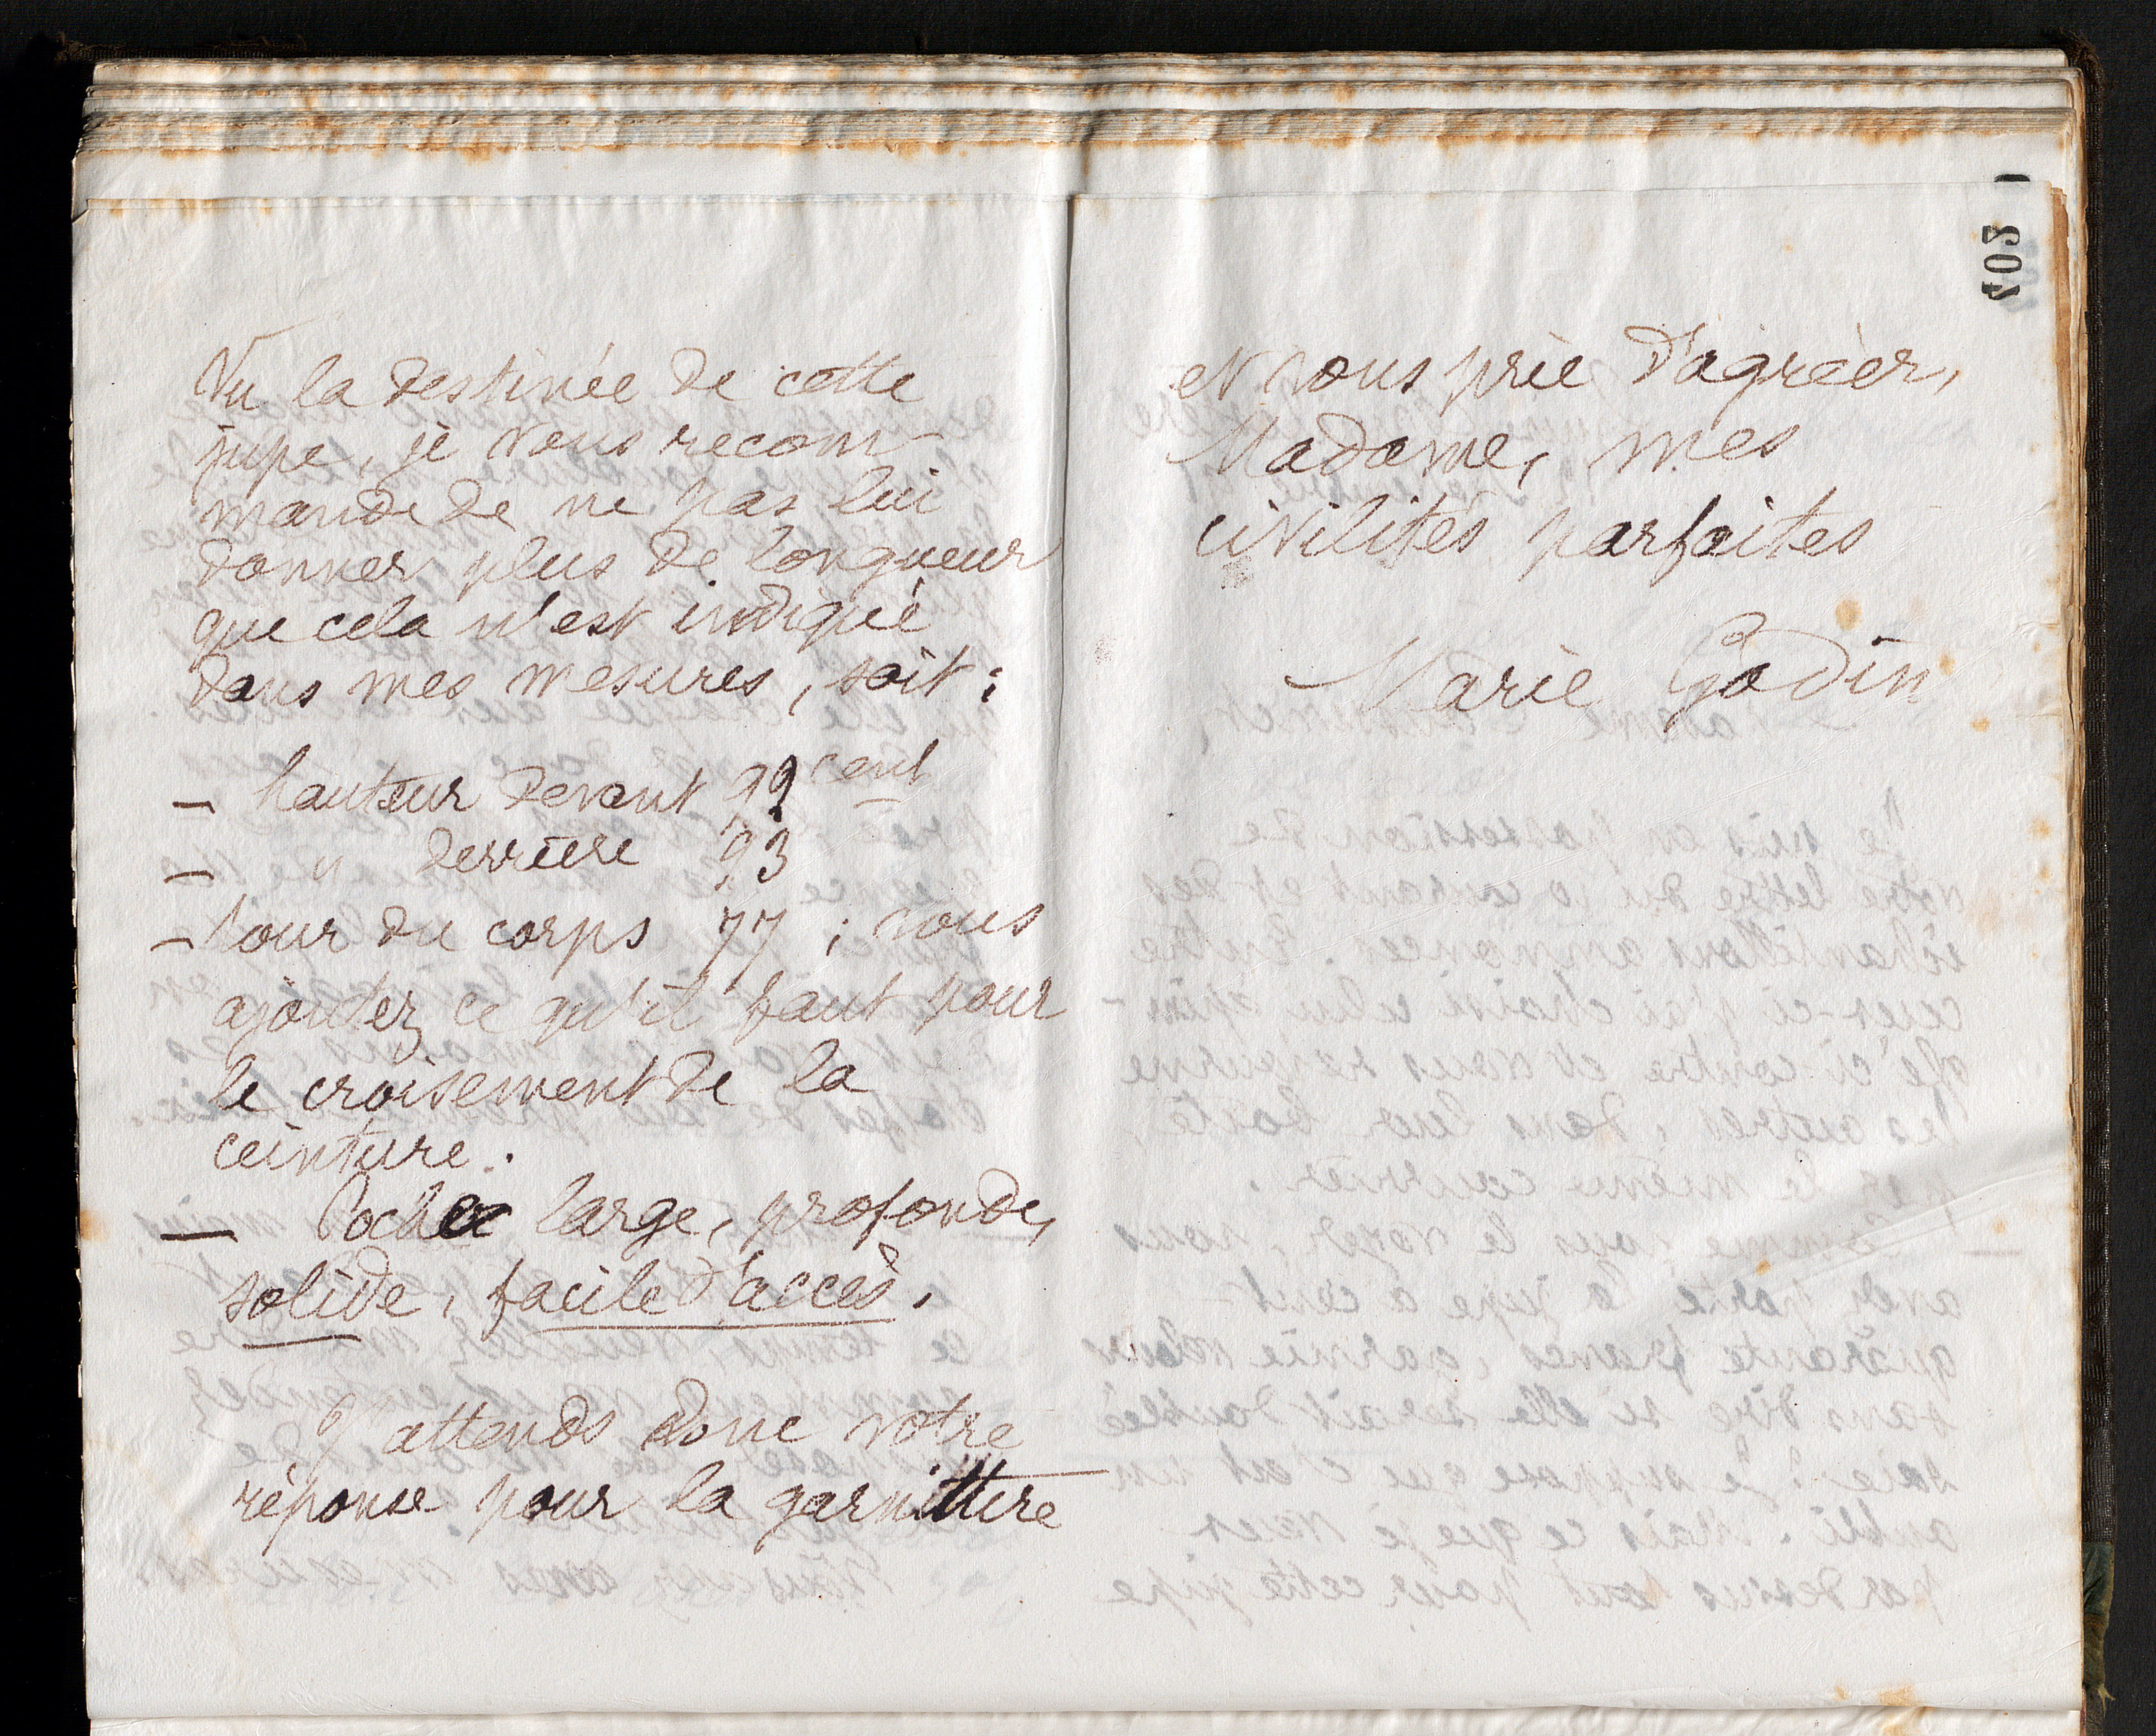 Vu la destinée de cette
jupe, je vous recom
mande de ne pas lui
donner plus de longueur
que cela n'est indiqué
dans mes mesures, soit :
— hauteur devant 92 cent
— " derrière 93
— tour du corps 77 ; vous
ajoutez ce qu'il faut pour
le croisement de la
ceinture.
— Poche large, profonde,
solide, facile d'accès.
J'attends donc votre
réponse pour la garniture
402
et vous prie d'agréer,
Madame, mes
civilités parfaites
Marie Godin